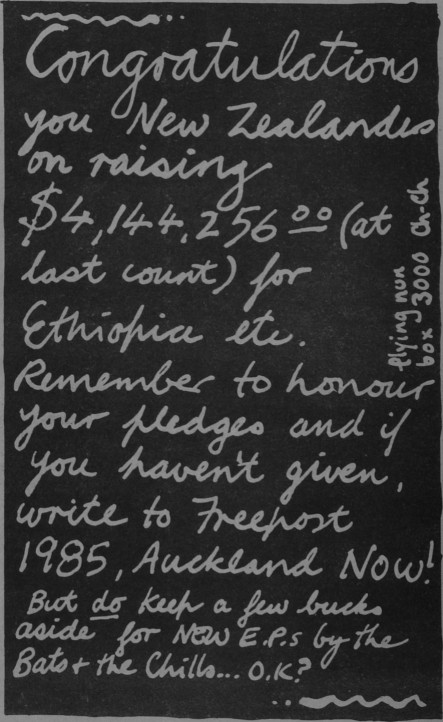 Congratulations
you New Zealanders
on raising
$4,144,256.00 (at
last count) for
Ethiopia etc.
Remember to honour
your pledges and if
you haven't given,
write to Freepost
1985, Auckland NOW!
But do keep a few bucks
aside for NEW E.P.s by the
Bats + the Chills... O.K?
flying nun
box 3000 Ch-Ch